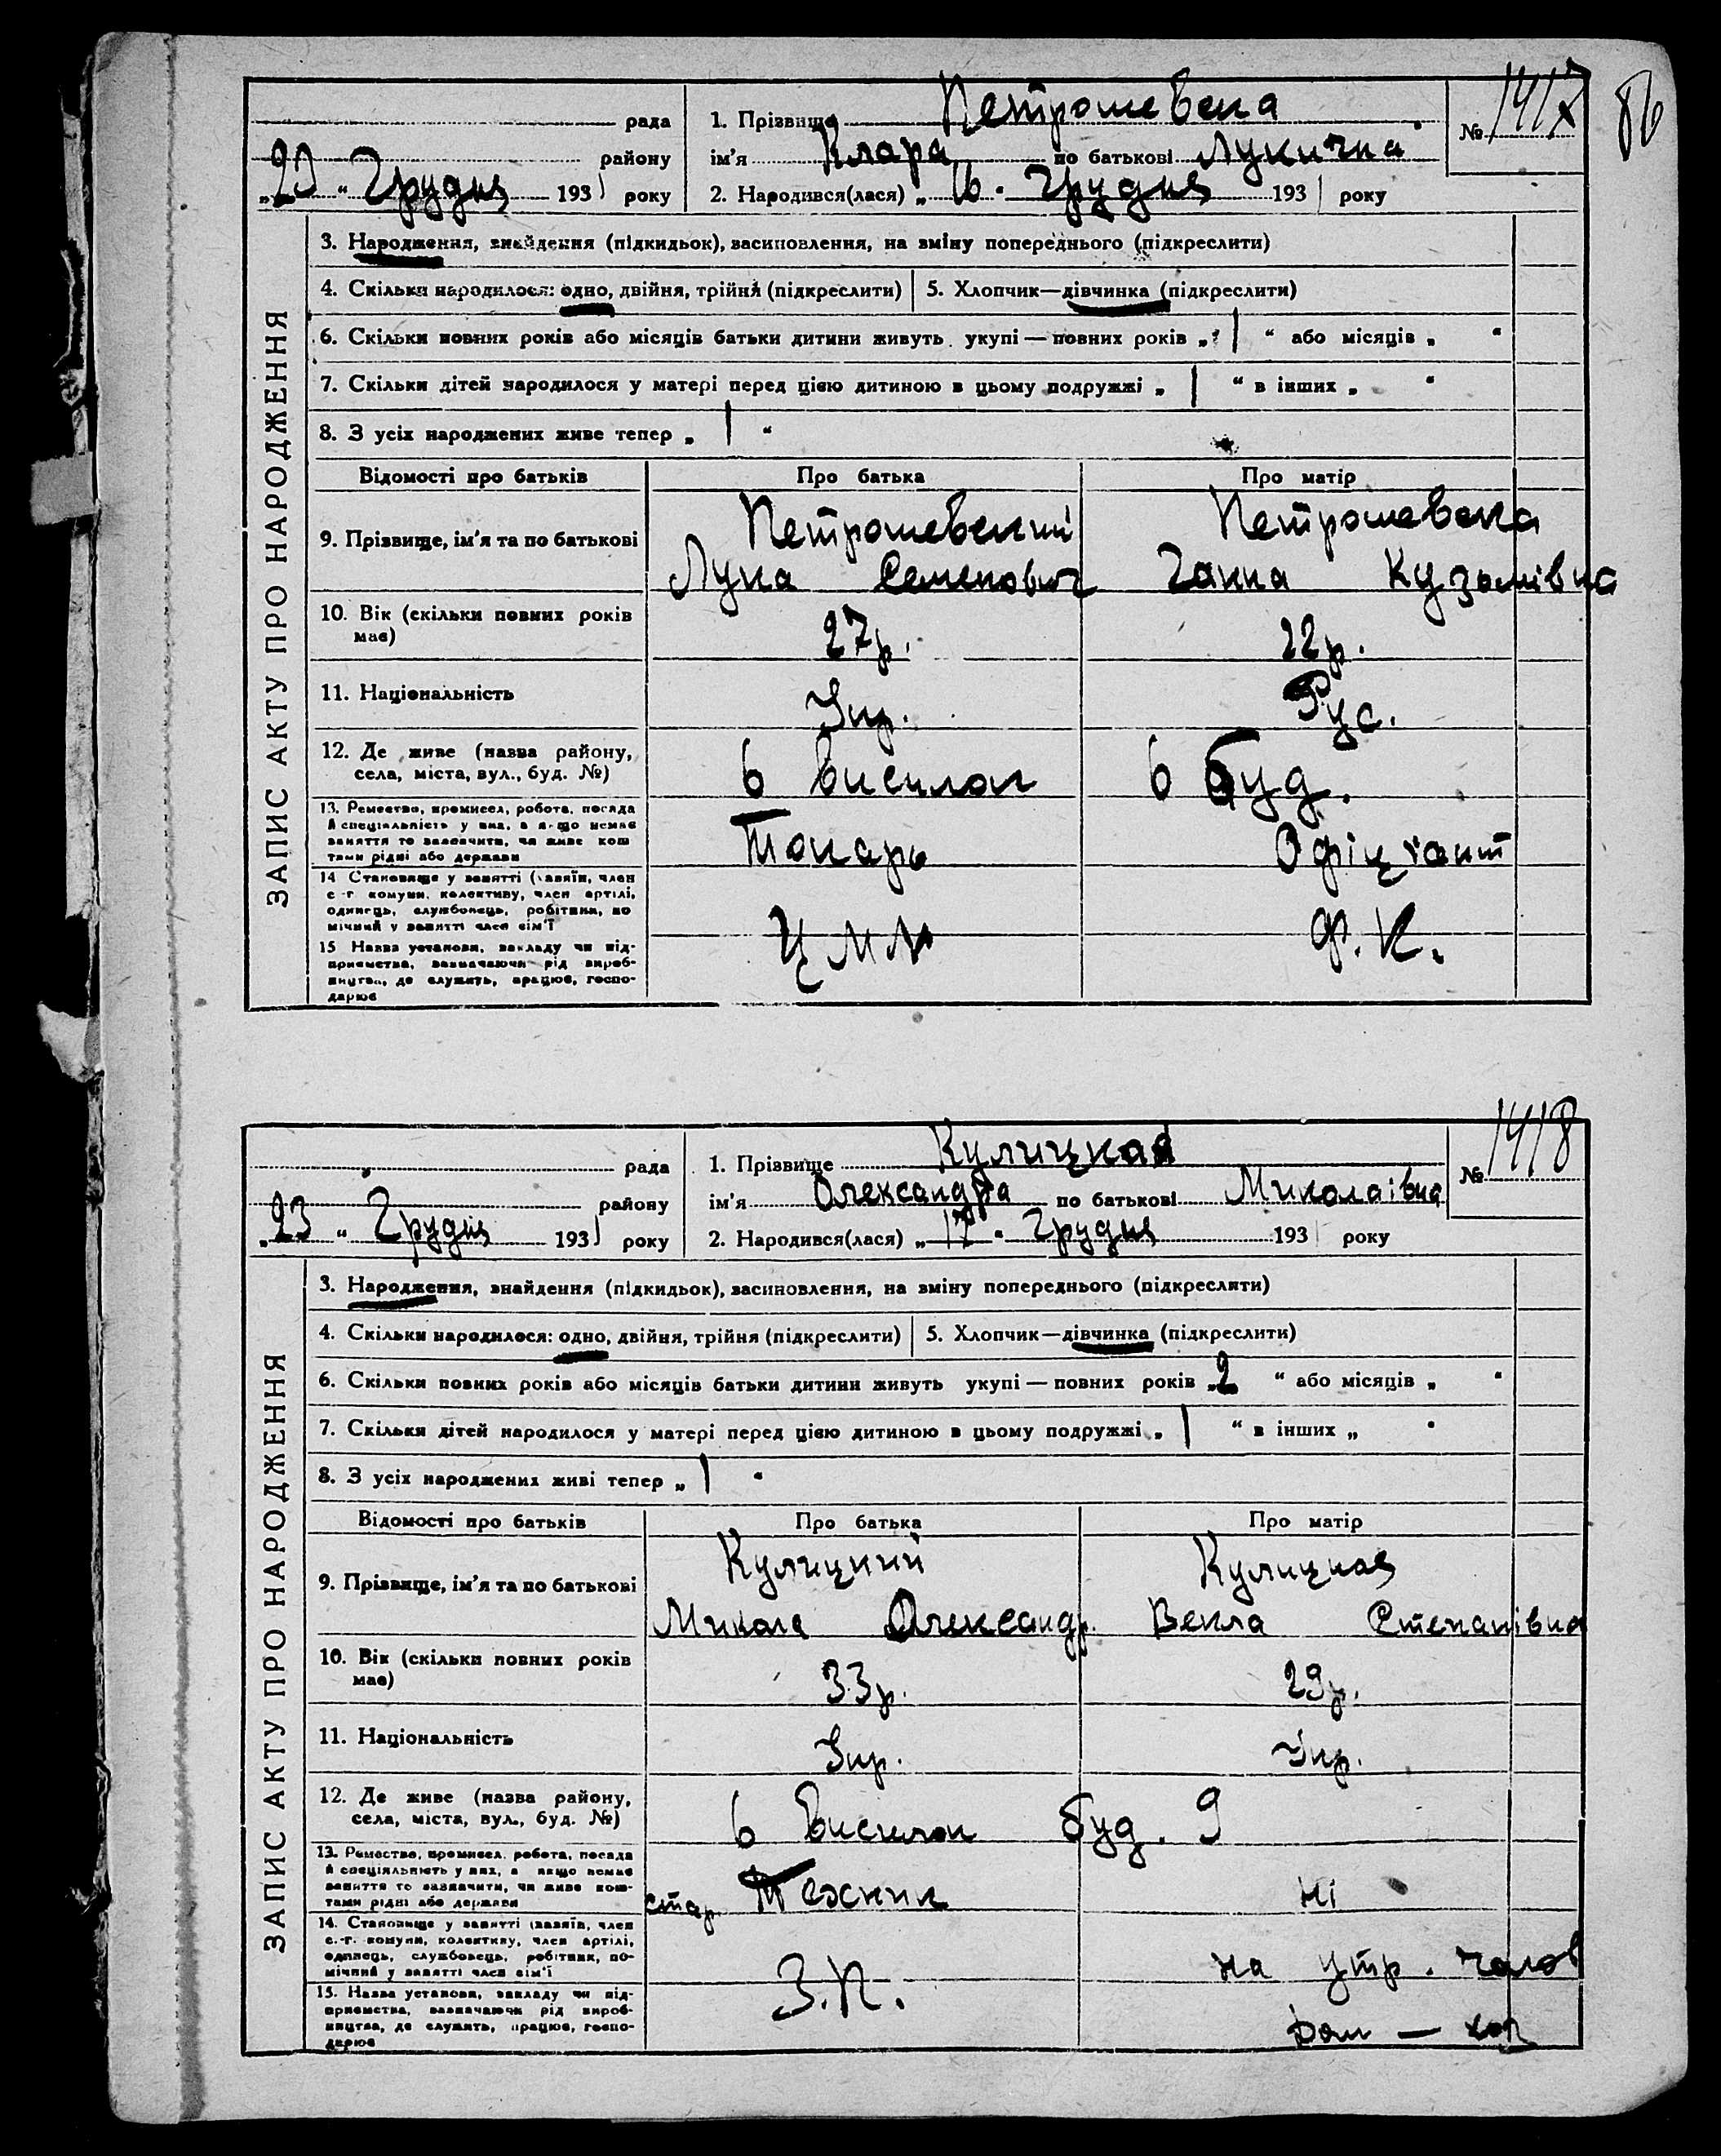 86
рада
1. Прізвище Петрошевска
№ 1417
району
ім'я Клара по батькові Лукична
„23“ Грудня 1931 року
2. Народився(лася) „16“ Грудня 1931 року
ЗАПИС АКТУ ПРО НАРОДЖЕННЯ
3. Народження, знайдення (підкидьок), засиновлення, на зміну попереднього (підкреслити)
4. Скільки народилося: одно, двійня, трійня (підкреслити) 5. Хлопчик—дівчинка (підкреслити)
6. Скільки повних років або місяців батьки дитини живуть укупі — повних років „1“ або місяців „ “
7. Скільки дітей народилося у матері перед цією дитиною в цьому подружжі „1“ в інших „ “
8. З усіх народжених живе тепер „1“
Відомості про батьків Про батька Про матір
9. Прізвище, ім'я та по батькові
Петрошевский Петрошевска
Лука Семенович Ганна Кузьмівна
10. Вік (скільки повних років має) 27р. 22р.
11. Національність Укр. Рус.
12. Де живе (назва району, села, міста, вул., буд. №) 6 виселок 6 буд.
13. Ремество, промисел, робота, посада й спеціяльність у них, а якщо немає заняття то зазначити, чи живе коштами рідні або держави
Токарь Офіціант
14 Становище у занятті (хазяїн, член с.-г. комуни, колективу, член артілі, одинець, службовець, робітник, помічний у занятті член сім'ї
15 Назва установи, закладу чи підприємства, зазначаючи рід виробництва, де служить, працює, господарює
Ц М М Ф. К.
рада
1. Прізвище Кулицкая
№ 1418
району
ім'я Олександра по батькові Миколаівна
„23“ Грудня 1931 року
2. Народився(лася) „17“ Грудня 1931 року
ЗАПИС АКТУ ПРО НАРОДЖЕННЯ
3. Народження, знайдення (підкидьок), засиновлення, на зміну попереднього (підкреслити)
4. Скільки народилося: одно, двійня, трійня (підкреслити) 5. Хлопчик—дівчинка (підкреслити)
6. Скільки повних років або місяців батьки дитини живуть укупі — повних років „2“ або місяців „ “
7. Скільки дітей народилося у матері перед цією дитиною в цьому подружжі „1“ в інших „ “
8. З усіх народжених живі тепер „1“
Відомості про батьків Про батька Про матір
9. Прізвище, ім'я та по батькові
Кулицкий Кулицкая
Микола Олександр. Векла Степанівна
10. Вік (скільки повних років має) 33р. 29р.
11. Національність Укр. Укр.
12. Де живе (назва району, села, міста, вул., буд. №) 6 виселок буд. 9
13. Ремество, промисел, робота, посада й спеціяльність у них, а якщо немає заняття то зазначити, чи живе коштами рідні або держави
стар. Технік ні
14. Становище у занятті (хазяїн, член с.-г. комуни, колективу, член артілі, одинець, службовець, робітник, помічний у занятті член сім'ї
на утр. чолов
15. Назва установи, закладу чи підприємства, зазначаючи рід виробництва, де служить, працює, господарює
З.П. дом — хоз